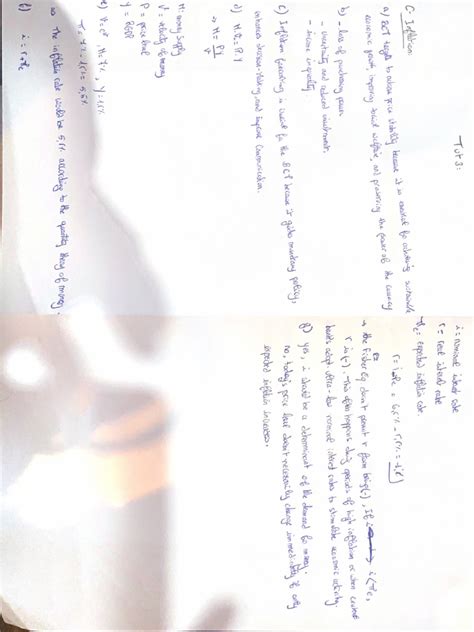 TUT 3:
C- Inflation:
a) BCT sought to obtain price stability because it is essential for achieving sustainable
economic growth, improving social welfare, and preserving the power of the currency
b) - loss of purchasing power
- uncertainty and reduced investments
- income inequality
c) Inflation forecasting is crucial for the BCT because it guides monetary policy,
enhances decision-making, and improve communication.
d) M.V = P.Y
M: money supply
V = velocity of money
P = price level
Y = RGDP
e)
⇒ The inflation rate would be 5,5% according to the quantity theory of money.
f)
i = nominal interest rate
r = real interest rate
πe = expected inflation rate
→ the Fisher Eq doesn't prevent r from being (-), If i < πe,
r is (-). This often happens during periods of high inflation or when central
banks adopt ultra-low nominal interest rates to stimulate economic activity.
g) Yes, i should be a determinant of the demand for money.
no, today's price level doesn't necessarily change immediately if only
expected inflation increases.